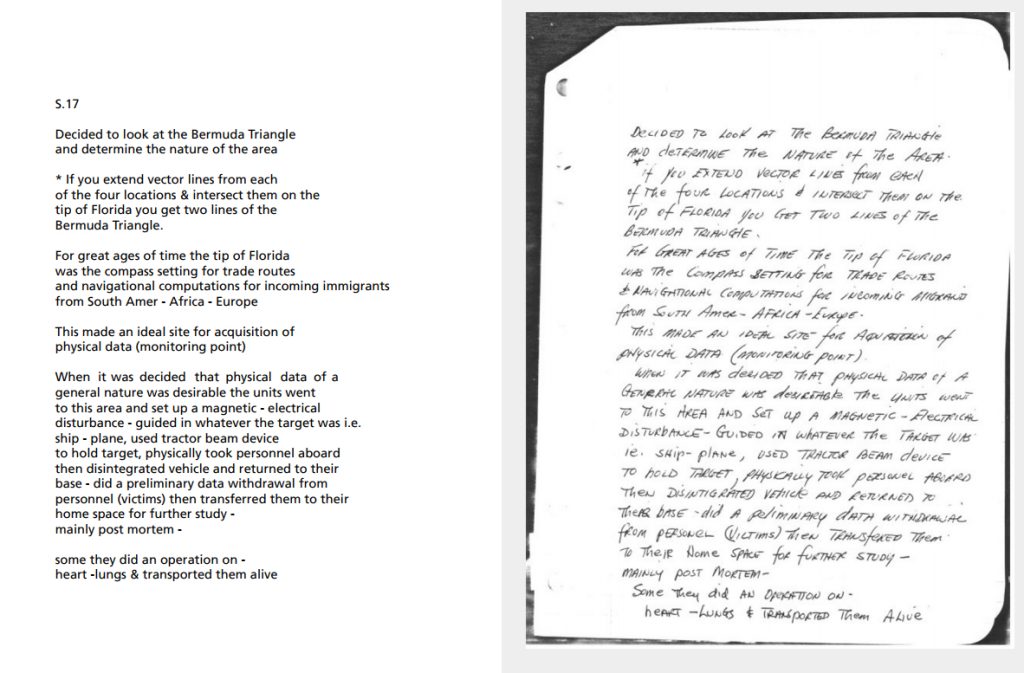 S.17
Decided to look at the Bermuda Triangle
and determine the nature of the area
* If you extend vector lines from each
of the four locations & intersect them on the
tip of Florida you get two lines of the
Bermuda Triangle.
For great ages of time the tip of Florida
was the compass setting for trade routes
and navigational computations for incoming immigrants
from South Amer - Africa - Europe
This made an ideal site for acquisition of
physical data (monitoring point)
When it was decided that physical data of a
general nature was desirable the units went
to this area and set up a magnetic - electrical
disturbance - guided in whatever the target was i.e.
ship - plane, used tractor beam device
to hold target, physically took personnel aboard
then disintegrated vehicle and returned to their
base - did a preliminary data withdrawal from
personnel (victims) then transferred them to their
home space for further study -
mainly post mortem -
some they did an operation on -
heart -lungs & transported them alive
DECIDED TO LOOK AT The BERMUDA TRIANGLE
AND dETERMINE The NATURE of The AREA.
* if you EXTEND VECTOR LINES from EACH
of The four LOCATIONS & INTERSECT THEM ON The
Tip of FLORIDA you GET TWO LINES of The
BERMUDA TRIANGLE.
FOR GREAT AGES of TIME The Tip of FLORIDA
WAS The COMPASS SETTING for TRADE ROUTES
& NAVIGATIONAL COMPUTATIONS for INCOMING
from SOUTH AMER- AFRICA -EUROPE.
This MADE AN IDEAL SITE for of
PHYSICAL DATA (MONITORING POINT).
WHEN IT WAS decided THAT PHYSICAL DATA of A
GENERAL NATURE WAS The UNITS WENT
TO This AREA AND SET up A MAGNETIC - ELECTRICAL
DISTURBANCE- GUIDED IN WHATEVER The TARGET WAS
ie. SHIP- PLANE, USED TRACTOR BEAM dEVICE
TO HOLD TARGET, PHYSICALLY TOOK PERSONEL ABOARD
THEN DISINTIGRATED VEHICLE AND RETURNED TO
TheiR BASE -did A DATA WITHDRAWAL
from PERSONEL (VICTIMS) THEN Them
TO TheiR Home SPACE for fURTHER STUDY -
MAINLY POST MORTEM-
Some They did AN OPERATION ON -
hEART -LUNGS & TRANSPORTED Them ALIVE